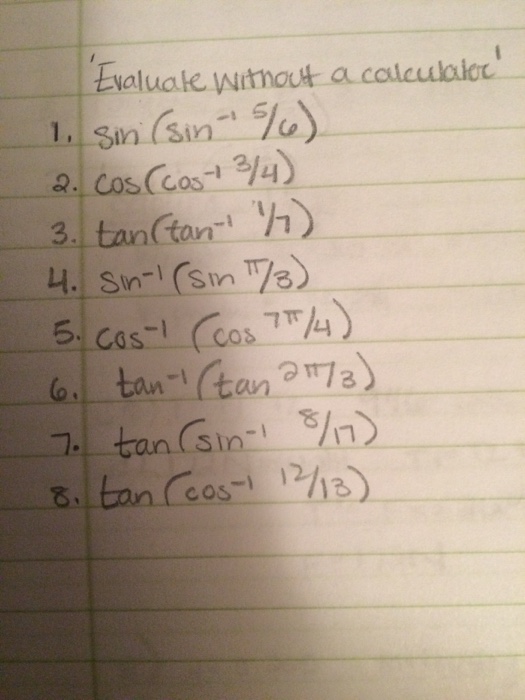 'Evaluate without a calculator'
1. sin (sin⁻¹ 5/6)
2. cos(cos⁻¹ 3/4)
3. tan(tan⁻¹ 1/7)
4. sin⁻¹ (sin π/3)
5. cos⁻¹ (cos 7π/4)
6. tan⁻¹ (tan 2π/3)
7. tan (sin⁻¹ 8/17)
8. tan (cos⁻¹ 12/13)